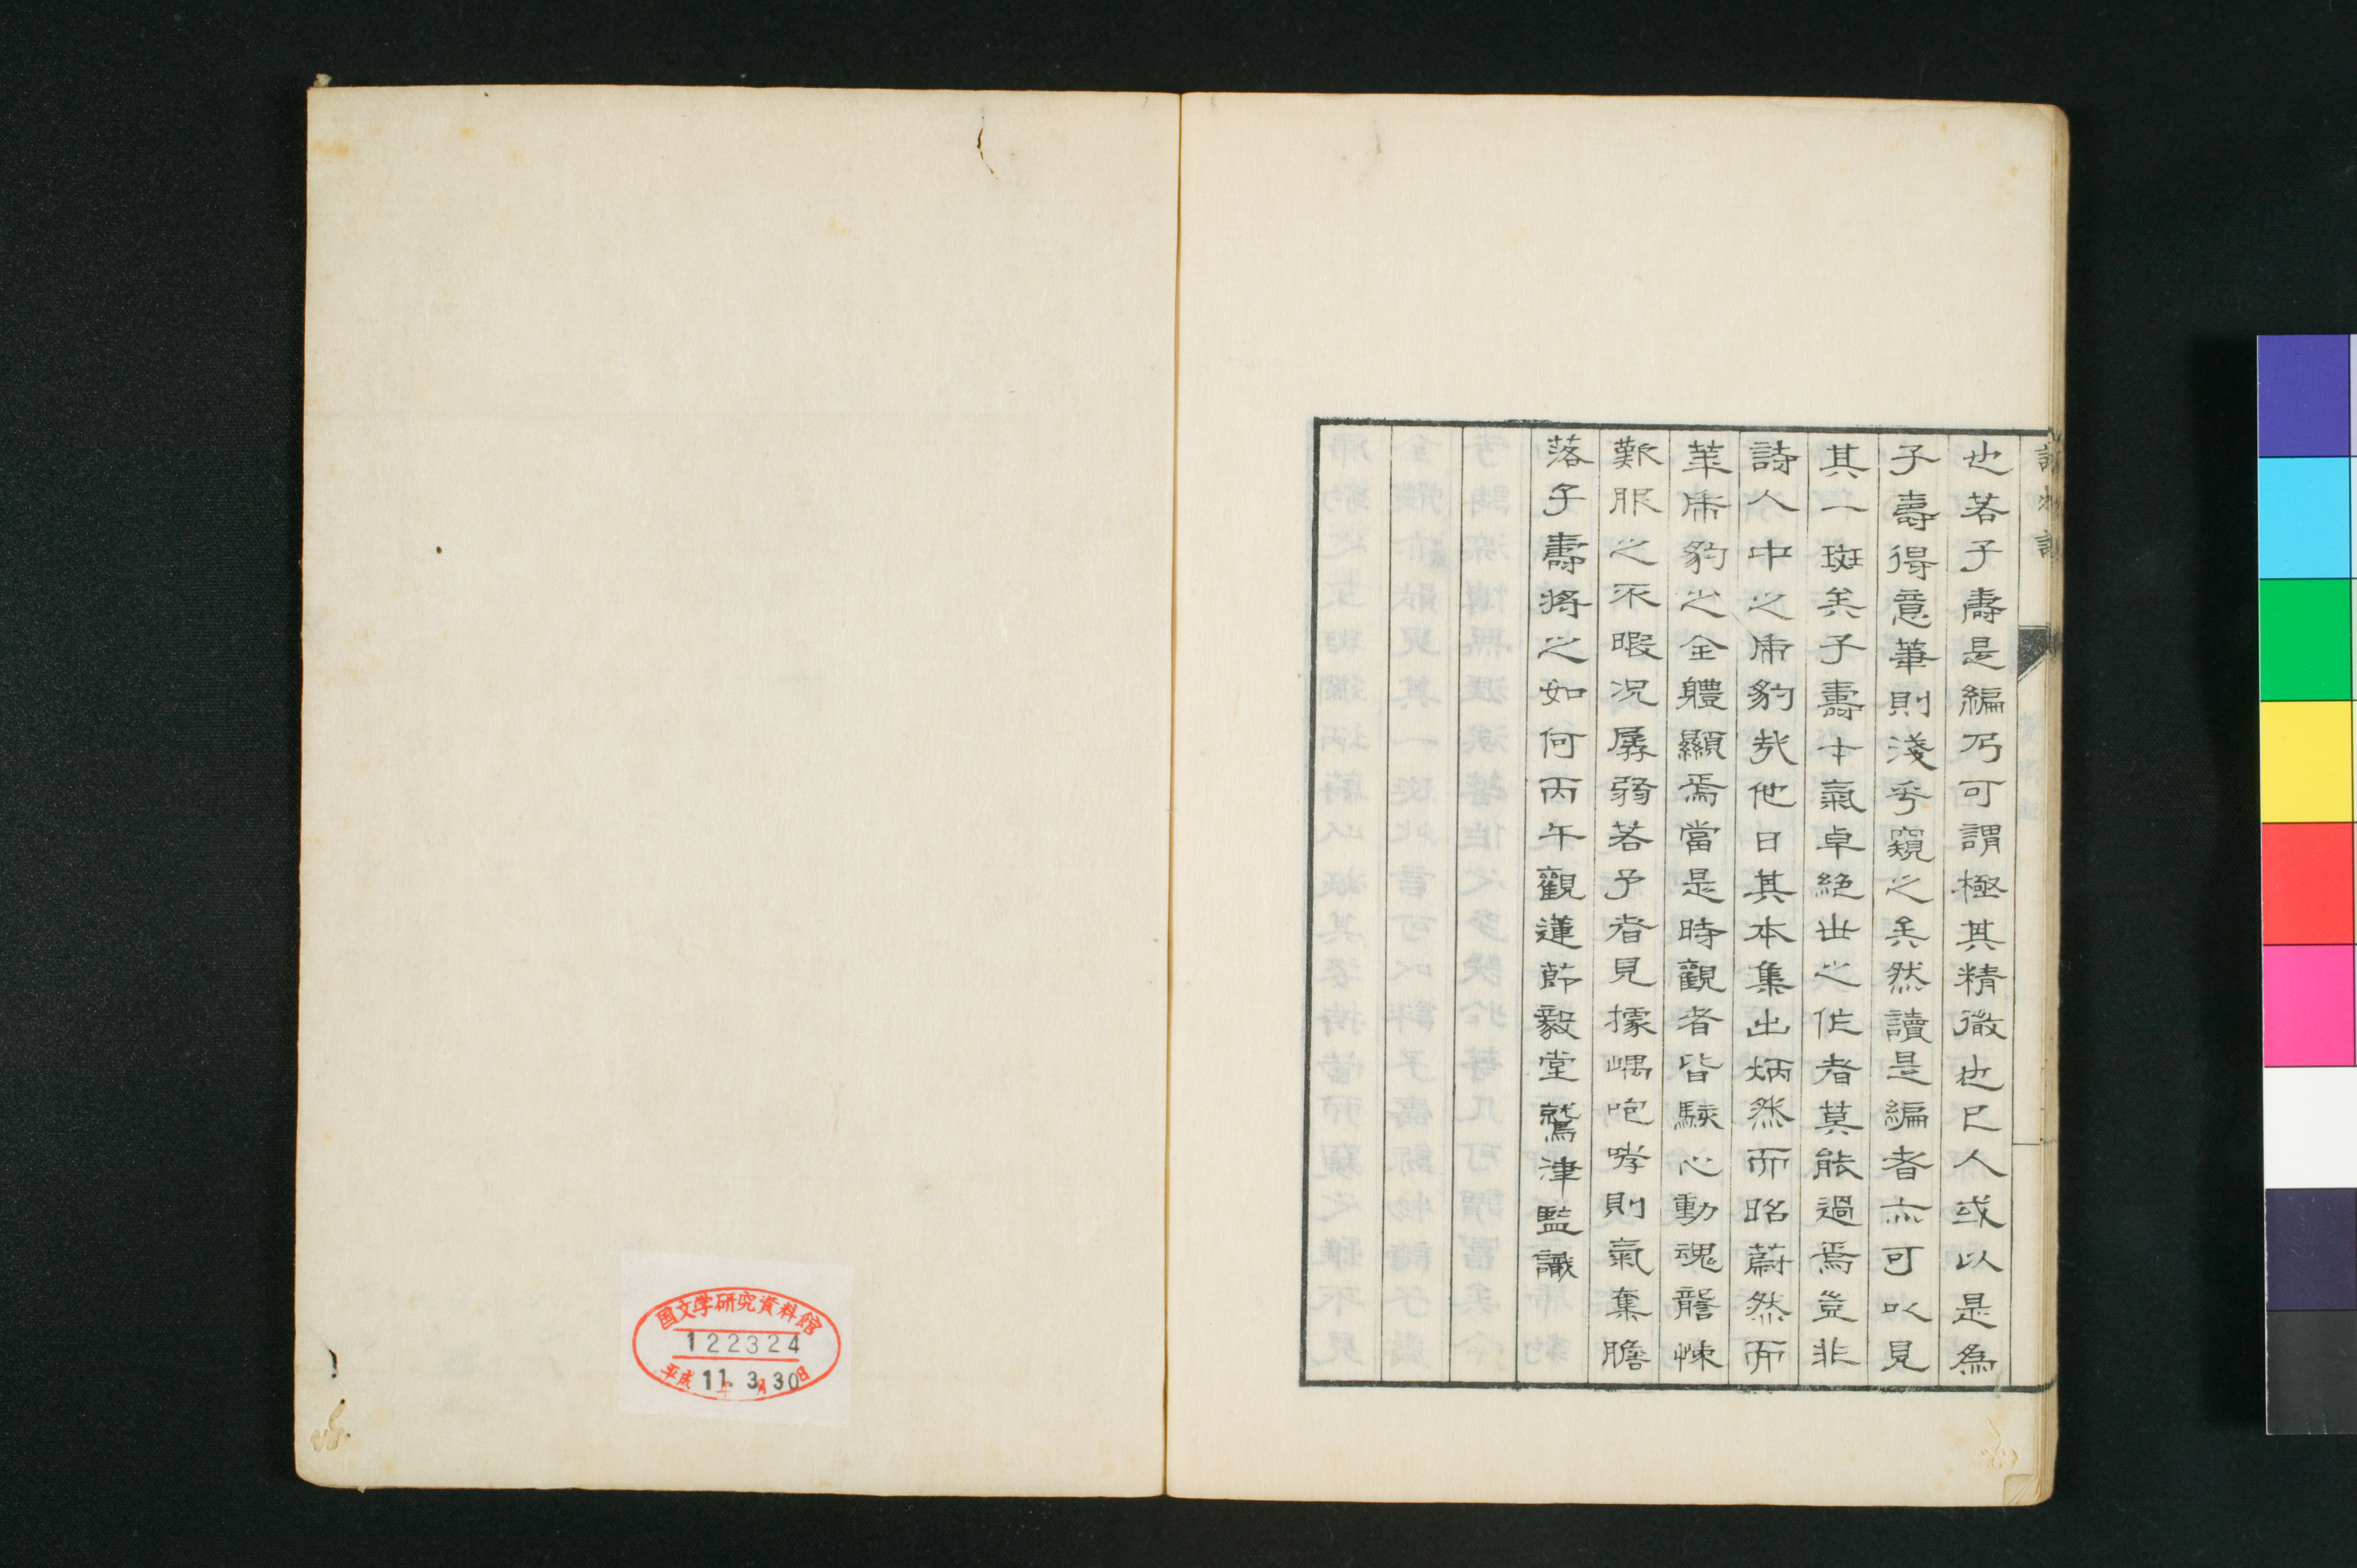 也若子壽是編乃可謂極其精微也已人或以是為
子壽得意筆則淺乎窺之矣然讀是編者亦可以見
其一斑矣子壽才氣卓絕世之作者莫能過焉豈非
詩人中之虎豹哉他日其本集出炳然而昭蔚然而
革虎豹之全體顯焉當是時觀者皆駭心動魂讋悚
歎服之不暇況孱弱若予者見據嵎咆哮則氣奪膽
落子壽將之如何丙午觀蓮節毅堂鷲津監識
国文学研究資料館
122324
平成11年3月30日